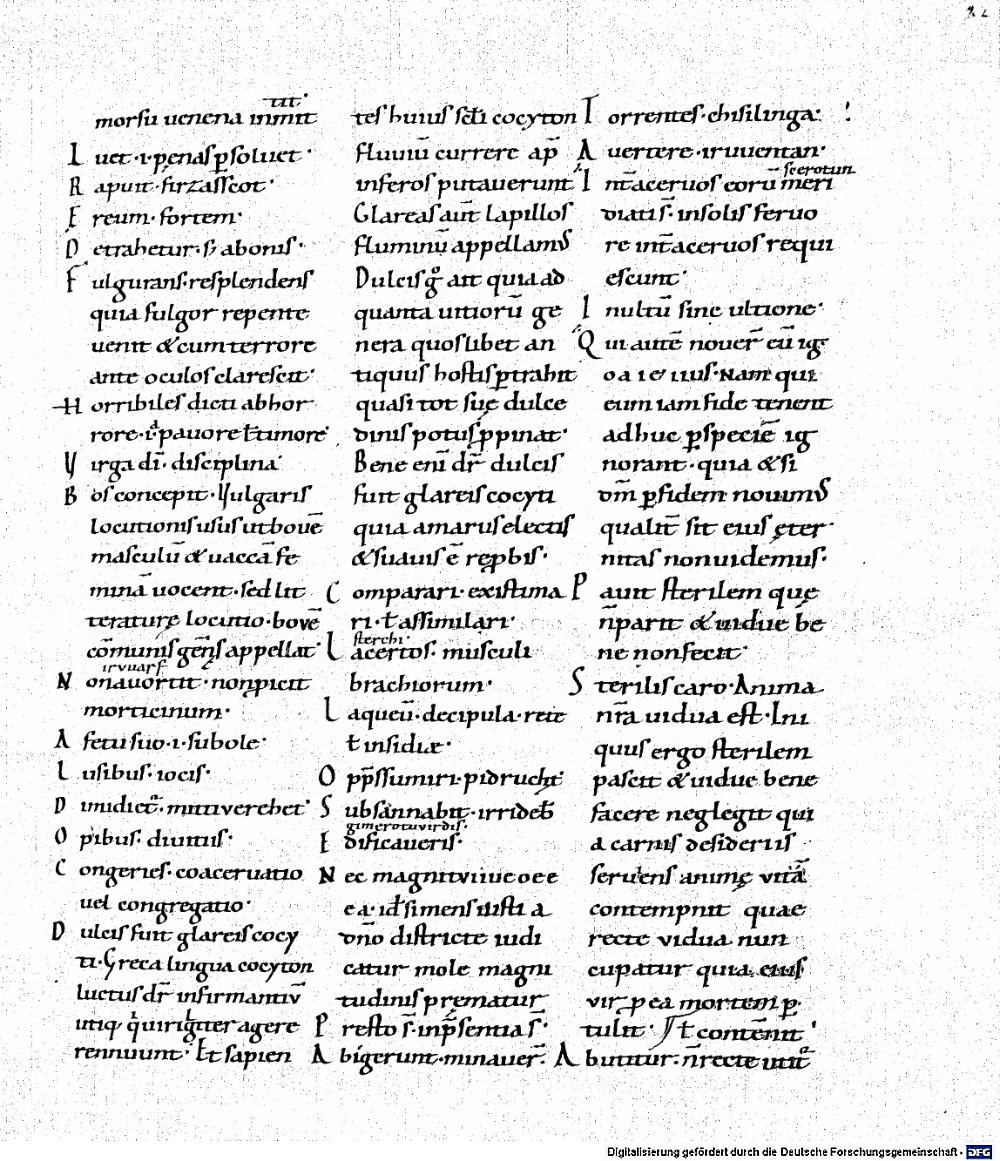 morsu uenena inmit
tit·
I uet·i·penas ꝑsoluet·
R apuit·firzasscot·
F ereum·fortem·
D etrahetur·s̄ aborus·
F ulgurans·resplendens
quia fulgor repente
uenit &cum terrore
ante oculos clarescit·
H orribiles dicti abhor
rore·i·pauore ł timore·
V irga dī·disciplina·
B os concepit·Vulgaris
locutionis usus ut bouē
masculū & uaccā fe
minā uocent·sed lit
terature locutio·bouē
cōmunis gen̄s appellat·
iruuarf
N on auortit·non ꝓicit
morticinum·
A fetu suo·i·subole·
L usibus·iocis·
O pibus·diuitiis·
C ongeries·coaceruatio
uel congregatio·
D ulcis fuit glareis cocy
ti·Greca lingua cocyton
luctus dr̄ infirmantiū
agere
rennuunt·Et sapien
tes huius scl̄i cocyton
fluuiū currere ap̄
inferos putauerunt
Glareas aut̄ lapillos
fluminū appellamus
Dulcis gͦ ait quia ad
quanta uitiorū ge
nera quos libet an
tiquus hostis ꝑtrahit
quasi tot suę dulce
dinis potus ꝓpinat·
Bene eni dr̄ dulcis
fuit glareis cocyti
quia amarus electis
& suauis ē reꝓbis·
C omparari·existima
ri·ł assimilari·
sterchi·
L acertos·musculi
brachiorum·
L aqueū·decipula·rete
ł insidiæ·
O pp̄ssumiri·pidrucht·
S ubsannabit·irrideb̄
gimerotuuirdis·
E dificaueris·
N ec magnitudine
ea·id si mens iusti a
dn̄o districte iudi
catur mole magni
tudinis prematur
P resto s̄·in p̄sentia s̄·
A bigerunt·minauer̄·
T orrentes·chisilinga·
A uertere·iruuentan·
scerotun
I nt̄ aceruos eorū meri
diati s̄·in solis feruo
re int̄ aceruos requi
escunt·
I nultū sine ultione·
Q ui autē nouer̄ eū ig
Nam qui
eum iam fide tenent
adhuc ꝑ speciē ig
norant·quia & si
dm̄ ꝑ fidem nouimus
qualit̄ sit eius ęter
nitas non uidemus·
P auit sterilem quę
n̄ parit & uidue be
ne non fecit·
S terilis caro·Anima
nr̄a uidua est·Ini
quus ergo sterilem
pascit & uidue bene
facere neglegit qui
a carnis desideriis
seruiens animę uitā
contempnit quae
recte uidua nun
cupatur quia eius
vir ꝑ ea mortem ꝑ
tulit· contēnit·
A butitur·n̄ recte utit᷑
Digitalisierung gefördert durch die Deutsche Forschungsgemeinschaft - DFG